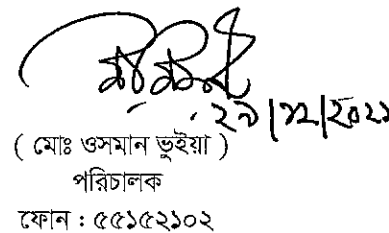 ২৯|১২|২০২১
( মোঃ ওসমান ভূইয়া )
পরিচালক
ফোন : ৫৫১৫২১০২